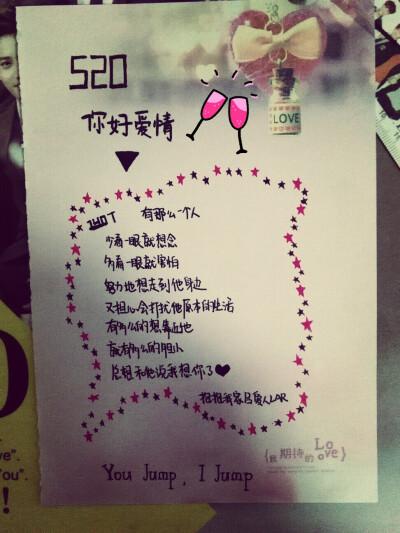 520
LOVE
你好爱情
有那么一个人
少看一眼就想念
多看一眼就害怕
努力地想走到他身边
又担心会打扰他原本的生活
有多么的想靠近他
就有多么的胆小
总想和他说我想你了
{我期待的Love}
You Jump, I Jump
ve".
You".
!